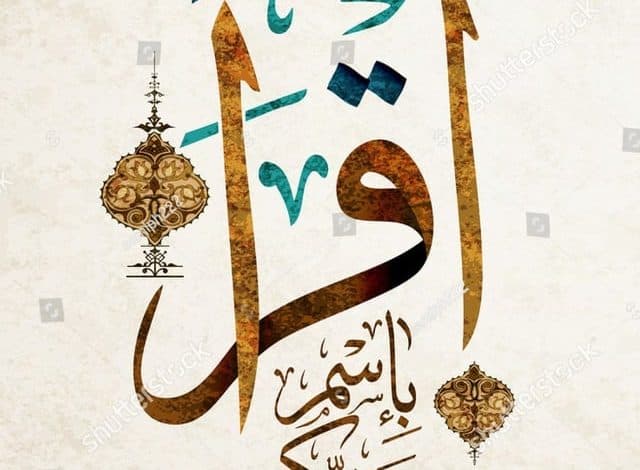 اقرأ
بإسم
ربك
shutterstock
shutterstock
shutterstock
shutterstock